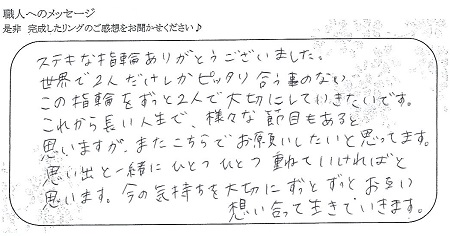 職人へのメッセージ
是非 完成したリングのご感想をお聞かせください♪
ステキな指輪ありがとうございました。
世界で2人だけしかピッタリ合う事のない
この指輪をずっと2人で大切にしていきたいです。
これから長い人生で、様々な節目もあると
思いますが、またこちらでお願いしたいと思ってます。
思い出と一緒にひとつひとつ重ねていければと
思います。今の気持ちを大切にずっとずっとお互い
想い合って生きていきます。